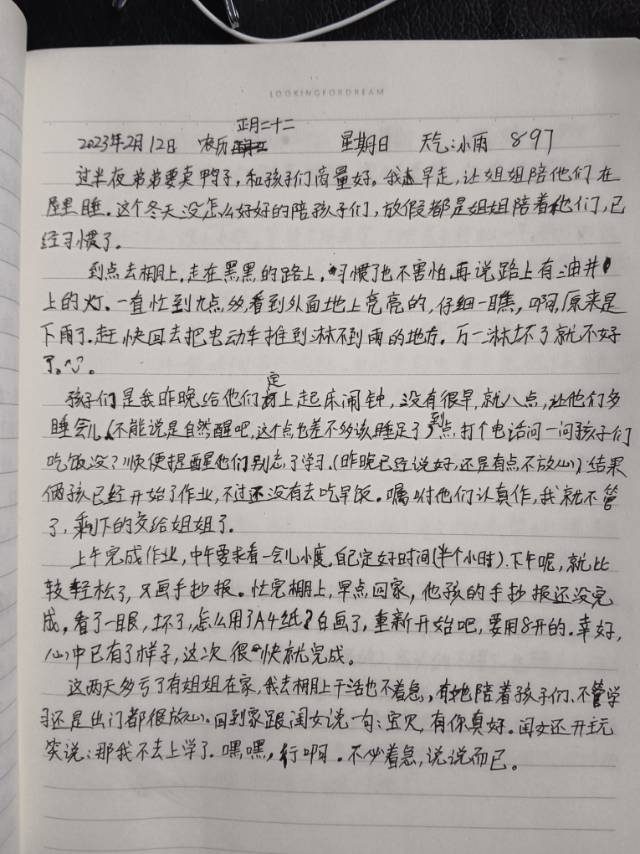 LOOKINGFORDREAM
正月二十二
2023年2月12日 农历 星期日 天气:小雨 897
过半夜弟弟要卖鸭子,和孩子们商量好。我早走,让姐姐陪他们在
屋里睡。这个冬天没怎么好好的陪孩子们,放假都是姐姐陪着他们,已
经习惯了。
到点去棚上,走在黑黑的路上,习惯了也不害怕,再说路上有油井
上的灯。一直忙到九点多,看到外面地上亮亮的,仔细一瞧,啊,原来是
下雨了。赶快回去把电动车推到淋不到雨的地方。万一淋坏了就不好
了。
孩子们是我昨晚给他们定上起床闹钟,没有很早,就八点,让他们多
睡会儿(不能说是自然醒吧,这个点也差不多该睡足了)到点,打个电话问一问孩子们
吃饭没?顺便提醒他们别忘了学习。(昨晚已经说好,还是有点不放心)结果
俩孩已经开始了作业,不过还没有去吃早饭。嘱咐他们认真作,我就不管
了,剩下的交给姐姐了。
上午完成作业,中午要来看一会儿小度,自己定好时间(半个小时)。下午呢,就比
较轻松了,又画手抄报。忙完棚上,早点回家,他孩的手抄报还没完
成,看了一眼,坏了,怎么用了A4纸?白画了,重新开始吧,要用8开的。幸好,
心中已有了样子,这次很快就完成。
这两天多亏了有姐姐在家,我去棚上干活也不着急,有她陪着孩子们,不管学
习还是出门都很放心。回到家跟闺女说一句:宝贝,有你真好。闺女还开玩
笑说:那我不去上学了。嘿嘿,行啊。不必着急,说说而已。